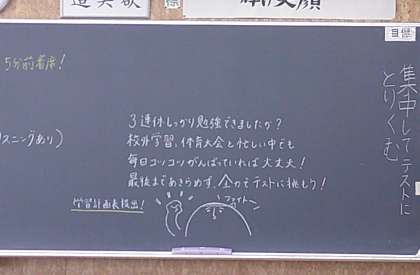 目標
集中してテストに
とりくむ
5分前着席!
スニングあり)
3連休しっかり勉強できましたか?
校外学習、体育大会と忙しい中でも
毎日コツコツがんばっていれば大丈夫!
最後まであきらめず、全力でテストに挑もう!
学習計画表提出!
ファイトー